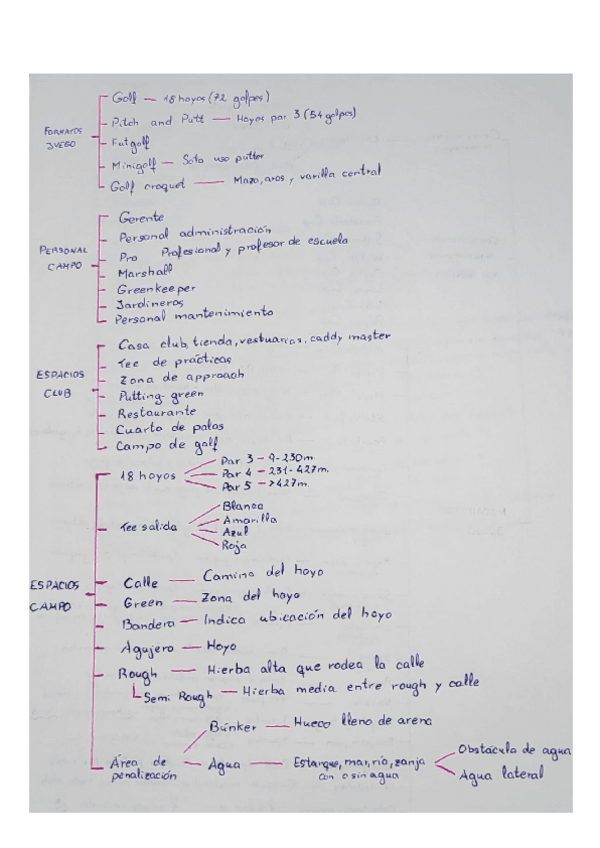 FORMATOS JUEGO
Golf — 18 hoyos (72 golpes)
Pitch and Putt — Hoyos par 3 (54 golpes)
Futgolf
Minigolf — Solo uso putter
Golf croquet — Mazo, aros y varilla central
PERSONAL CAMPO
Gerente
Personal administración
Pro Profesional y profesor de escuela
Marshall
Greenkeeper
Jardineros
Personal mantenimiento
ESPACIOS CLUB
Casa club, tienda, vestuarios, caddy master
Tee de prácticas
Zona de approach
Putting-green
Restaurante
Cuarto de palos
Campo de golf
ESPACIOS CAMPO
18 hoyos
Par 3 — 9-230m.
Par 4 — 231-427m.
Par 5 — >427m.
Tee salida
Blanca
Amarilla
Azul
Roja
Calle — Camino del hoyo
Green — Zona del hoyo
Bandera — Indica ubicación del hoyo
Agujero — Hoyo
Rough — Hierba alta que rodea la calle
Semi Rough — Hierba media entre rough y calle
Área de penalización
Búnker — Hueco lleno de arena
Agua — Estanque, mar, río, zanja
con o sin agua
Obstáculo de agua
Agua lateral